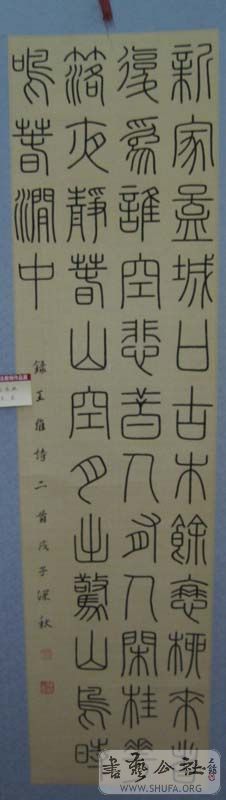 新家孟城口古木餘衰柳来者
復爲誰空悲昔人有人閑桂花
落夜靜春山空月出驚山鳥時
鳴春澗中
錄王維詩二首戊子深秋
書藝公社
WWW.SHUFA.ORG